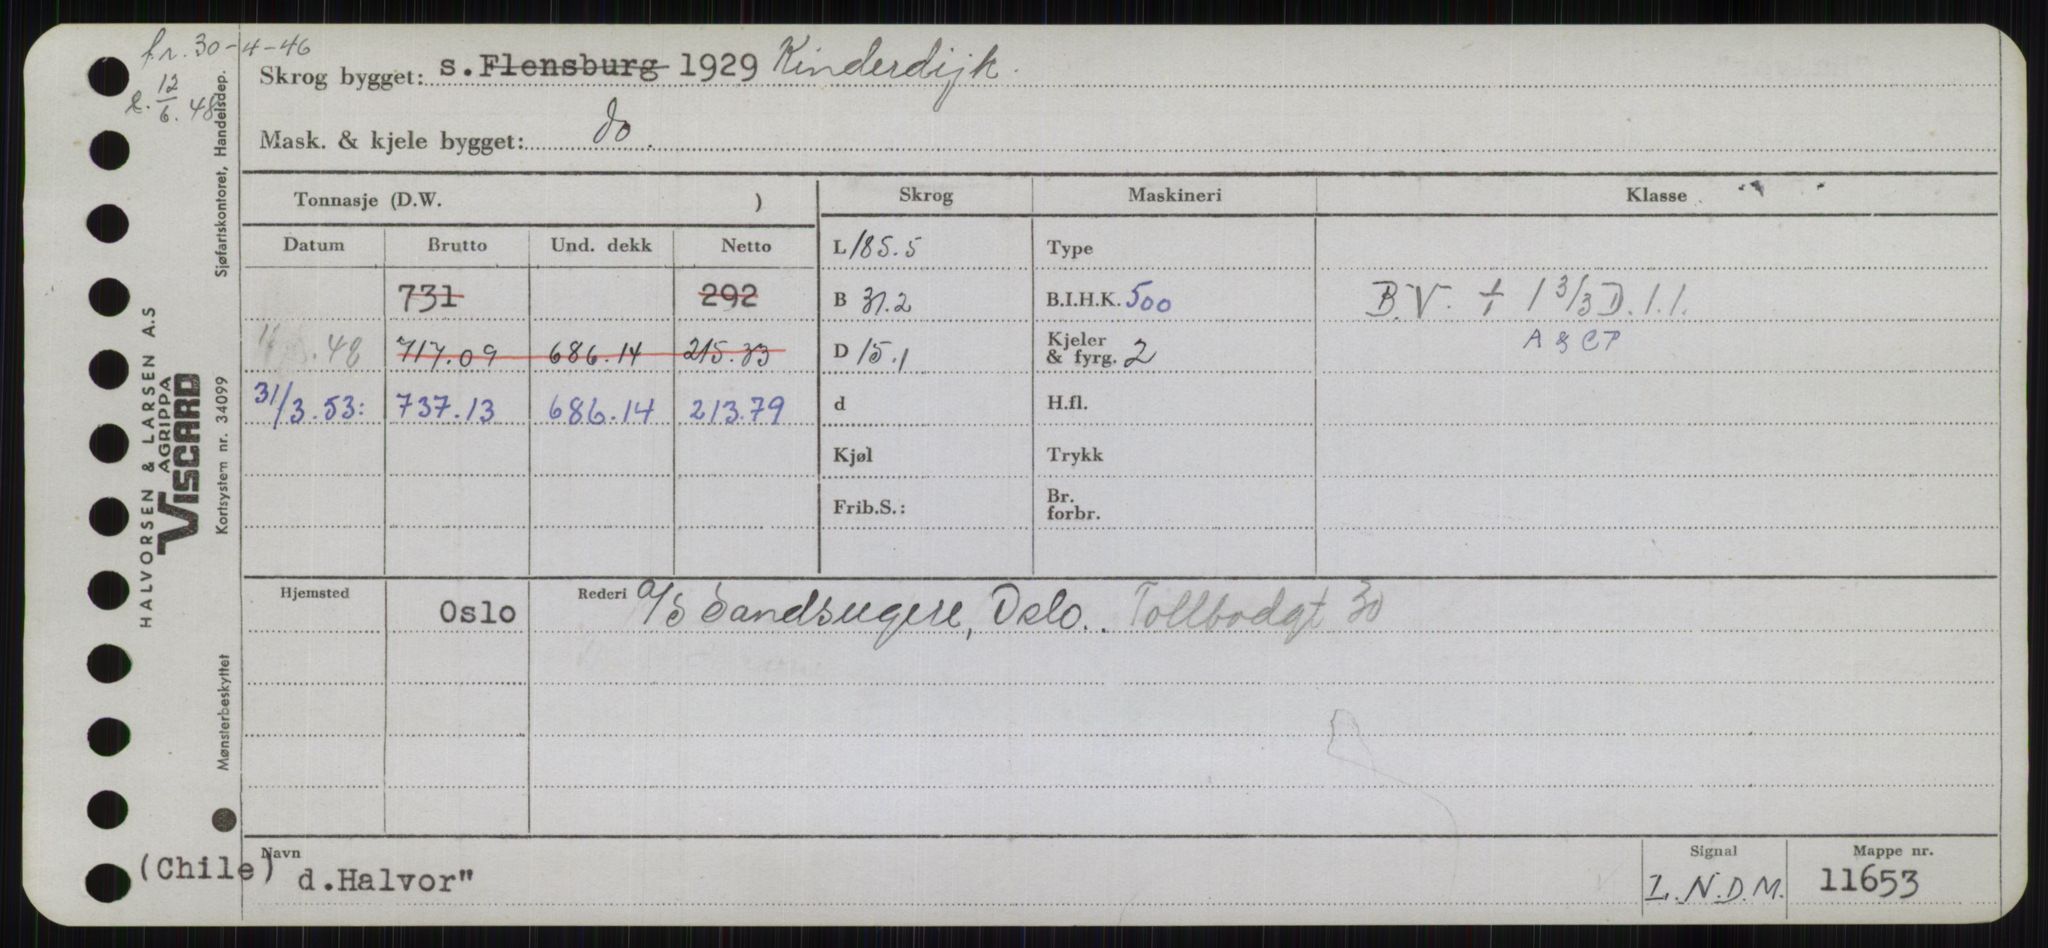 fr. 30-4-46
12/6.48
Skrog bygget: s. Flensburg 1929 Kinderdijk.
Mask. & kjele bygget: do.
Tonnasje (D.W. )
Skrog
Maskineri
Klasse
Datum
Brutto
Und. dekk
Netto
L 185.5
Type
731
292
B 31.2
B.I.H.K. 500
B.V. + 1 3/3 D.1.1.
.48
717.09
686.14
215.33
D 15.1
Kjeler
& fyrg. 2
A & CP
31/3.53:
737.13
686.14
213.79
d
H.fl.
Kjøl
Trykk
Frib.S.:
Br.
forbr.
Hjemsted
Oslo
Rederi A/S Sandsugere, Oslo. Tollbodgt 30
Navn
(Chile) d.Halvor"
Signal
L.N.D.M.
Mappe nr.
11653
HALVORSEN & LARSEN A.S
AGRIPPA
VISCARD
Mønsterbeskyttet
Kortsystem nr. 34099
Sjøfartskontoret, Handelsdep.